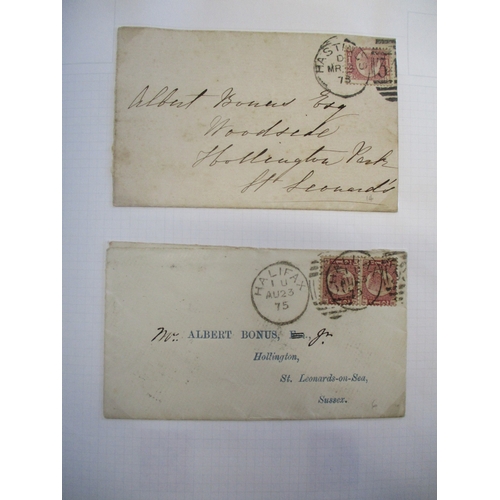 HASTINGS
D
MR 23
75
Albert Bonus Esq
Woodside
Hollington Park
St Leonards
HALIFAX
1 U
AU 23
75
Mr. ALBERT BONUS, Jr.
Hollington,
St. Leonards-on-Sea,
Sussex.